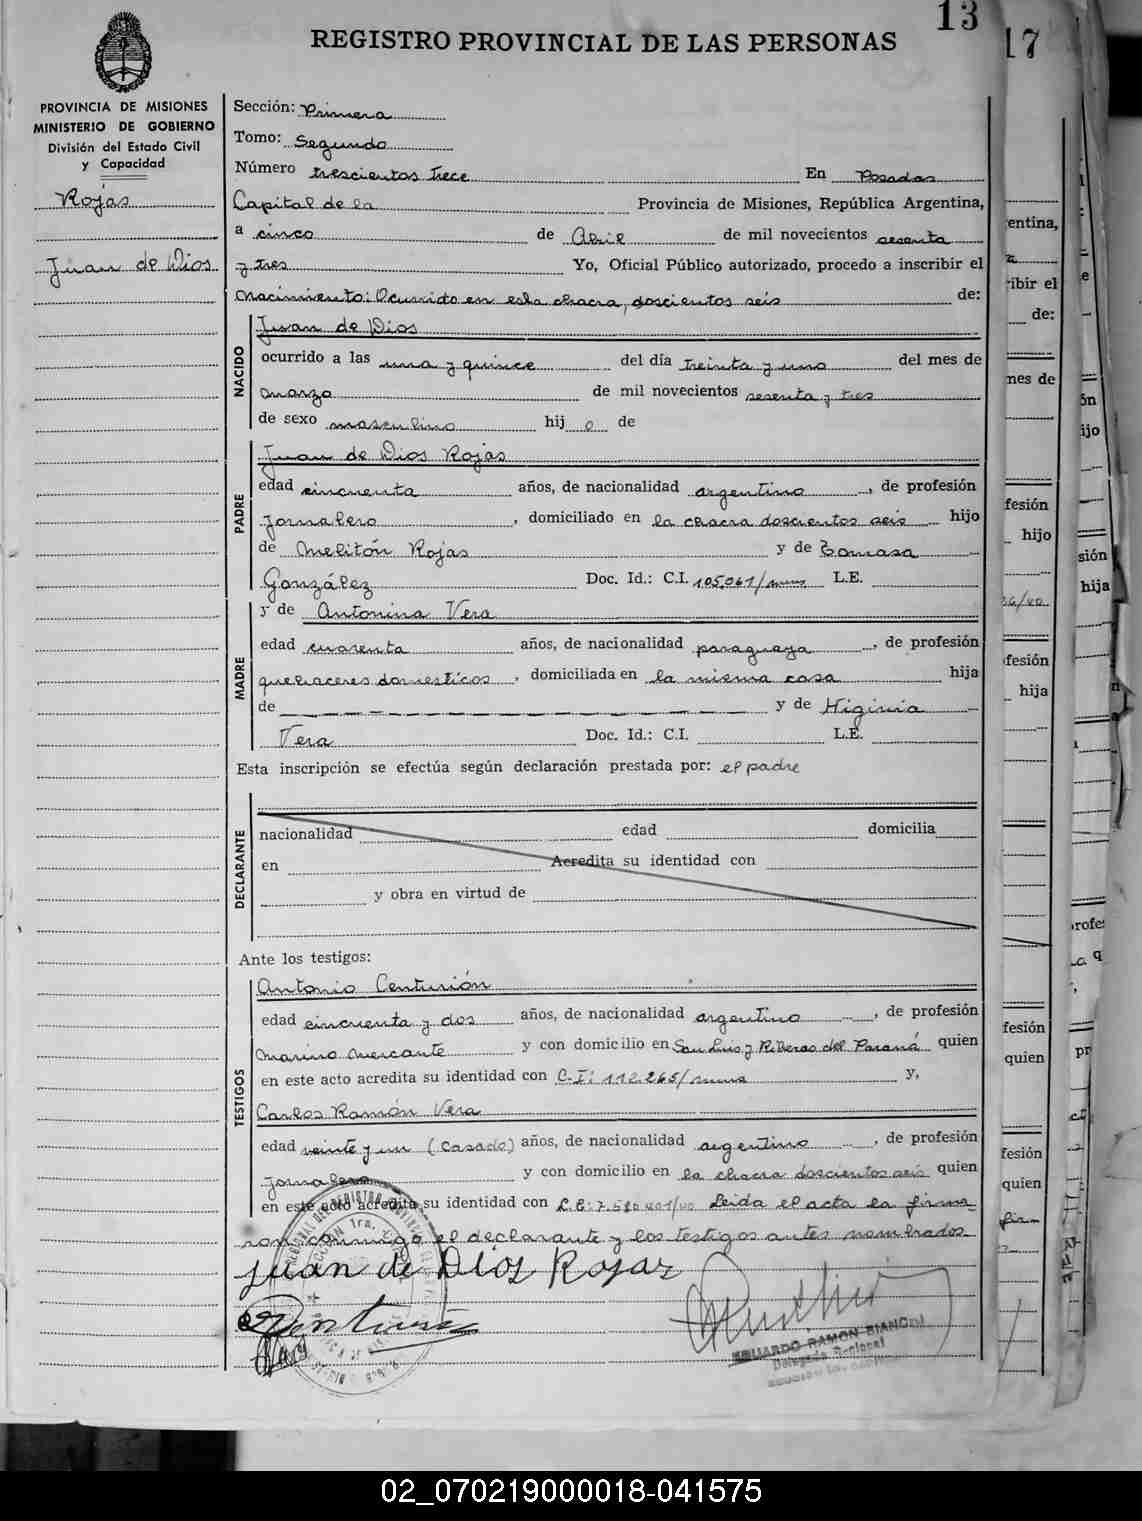 13
REGISTRO PROVINCIAL DE LAS PERSONAS
17
PROVINCIA DE MISIONES
MINISTERIO DE GOBIERNO
División del Estado Civil
y Capacidad
Rojas
Juan de Dios
Sección: Primera
Tomo: Segundo
Número trescientos trece En Posadas
Capital de la Provincia de Misiones, República Argentina,
a cinco de Abril de mil novecientos sesenta
y tres Yo, Oficial Público autorizado, procedo a inscribir el
Nacimiento: Ocurrido en esta chacra, doscientos seis de:
NACIDO
Juan de Dios
ocurrido a las una y quince del día treinta y uno del mes de
marzo de mil novecientos sesenta y tres
de sexo masculino hij o de
PADRE
Juan de Dios Rojas
edad cincuenta años, de nacionalidad argentino, de profesión
jornalero, domiciliado en la chacra doscientos seis hijo
de Melitón Rojas y de Tomasa
González Doc. Id.: C.I. 105.061/mnes L.E.
y de Antonina Vera
MADRE
edad cuarenta años, de nacionalidad paraguaya, de profesión
quehaceres domesticos, domiciliada en la misma casa hija
de y de Higinia
Vera Doc. Id.: C.I. L.E.
Esta inscripción se efectúa según declaración prestada por: el padre
DECLARANTE
nacionalidad edad domicilia
en Acredita su identidad con
y obra en virtud de
Ante los testigos:
TESTIGOS
Antonio Centurión
edad cincuenta y dos años, de nacionalidad argentino, de profesión
Marino Mercante y con domicilio en San Luis y Riberas del Paraná quien
en este acto acredita su identidad con C.I: 112.265/mnes y,
Carlos Ramón Vera
edad veinte y un (Casado) años, de nacionalidad argentino, de profesión
jornalero y con domicilio en la chacra doscientos seis quien
en este acto acredita su identidad con Leida el acta la firma
ron conmigo el declarante y los testigos antes nombrados.
Juan de Dios Rojas
EDUARDO RAMON BIANCHI
Delegado Regional
02_070219000018-041575